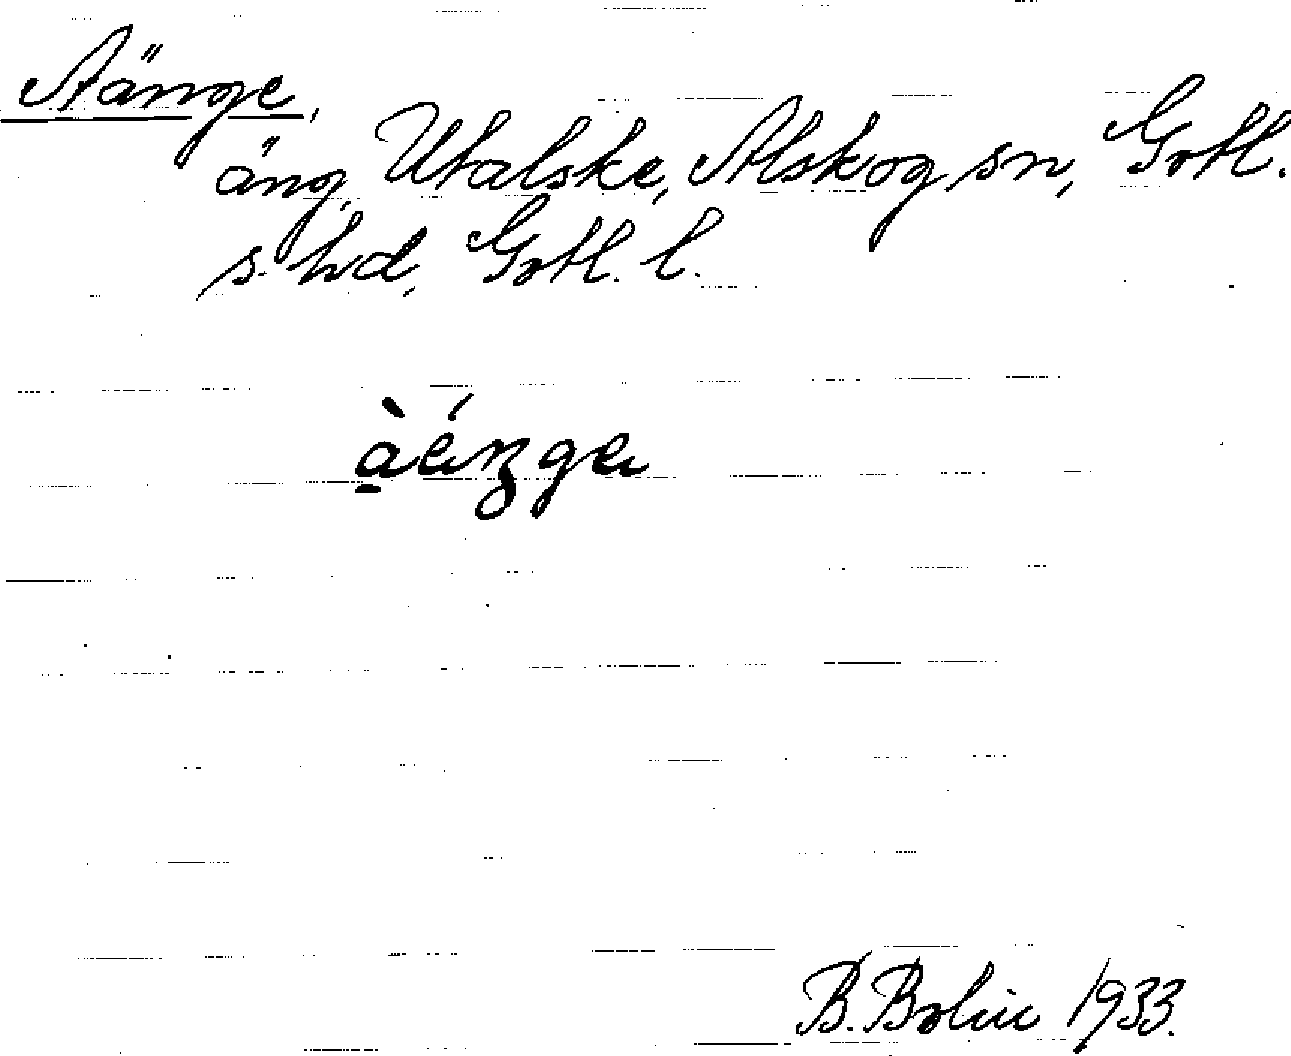 Aänge,
äng, Utalske, Alskog sn, Gotl.
s. hd, Gotl. l.
B. Bolin 1933.